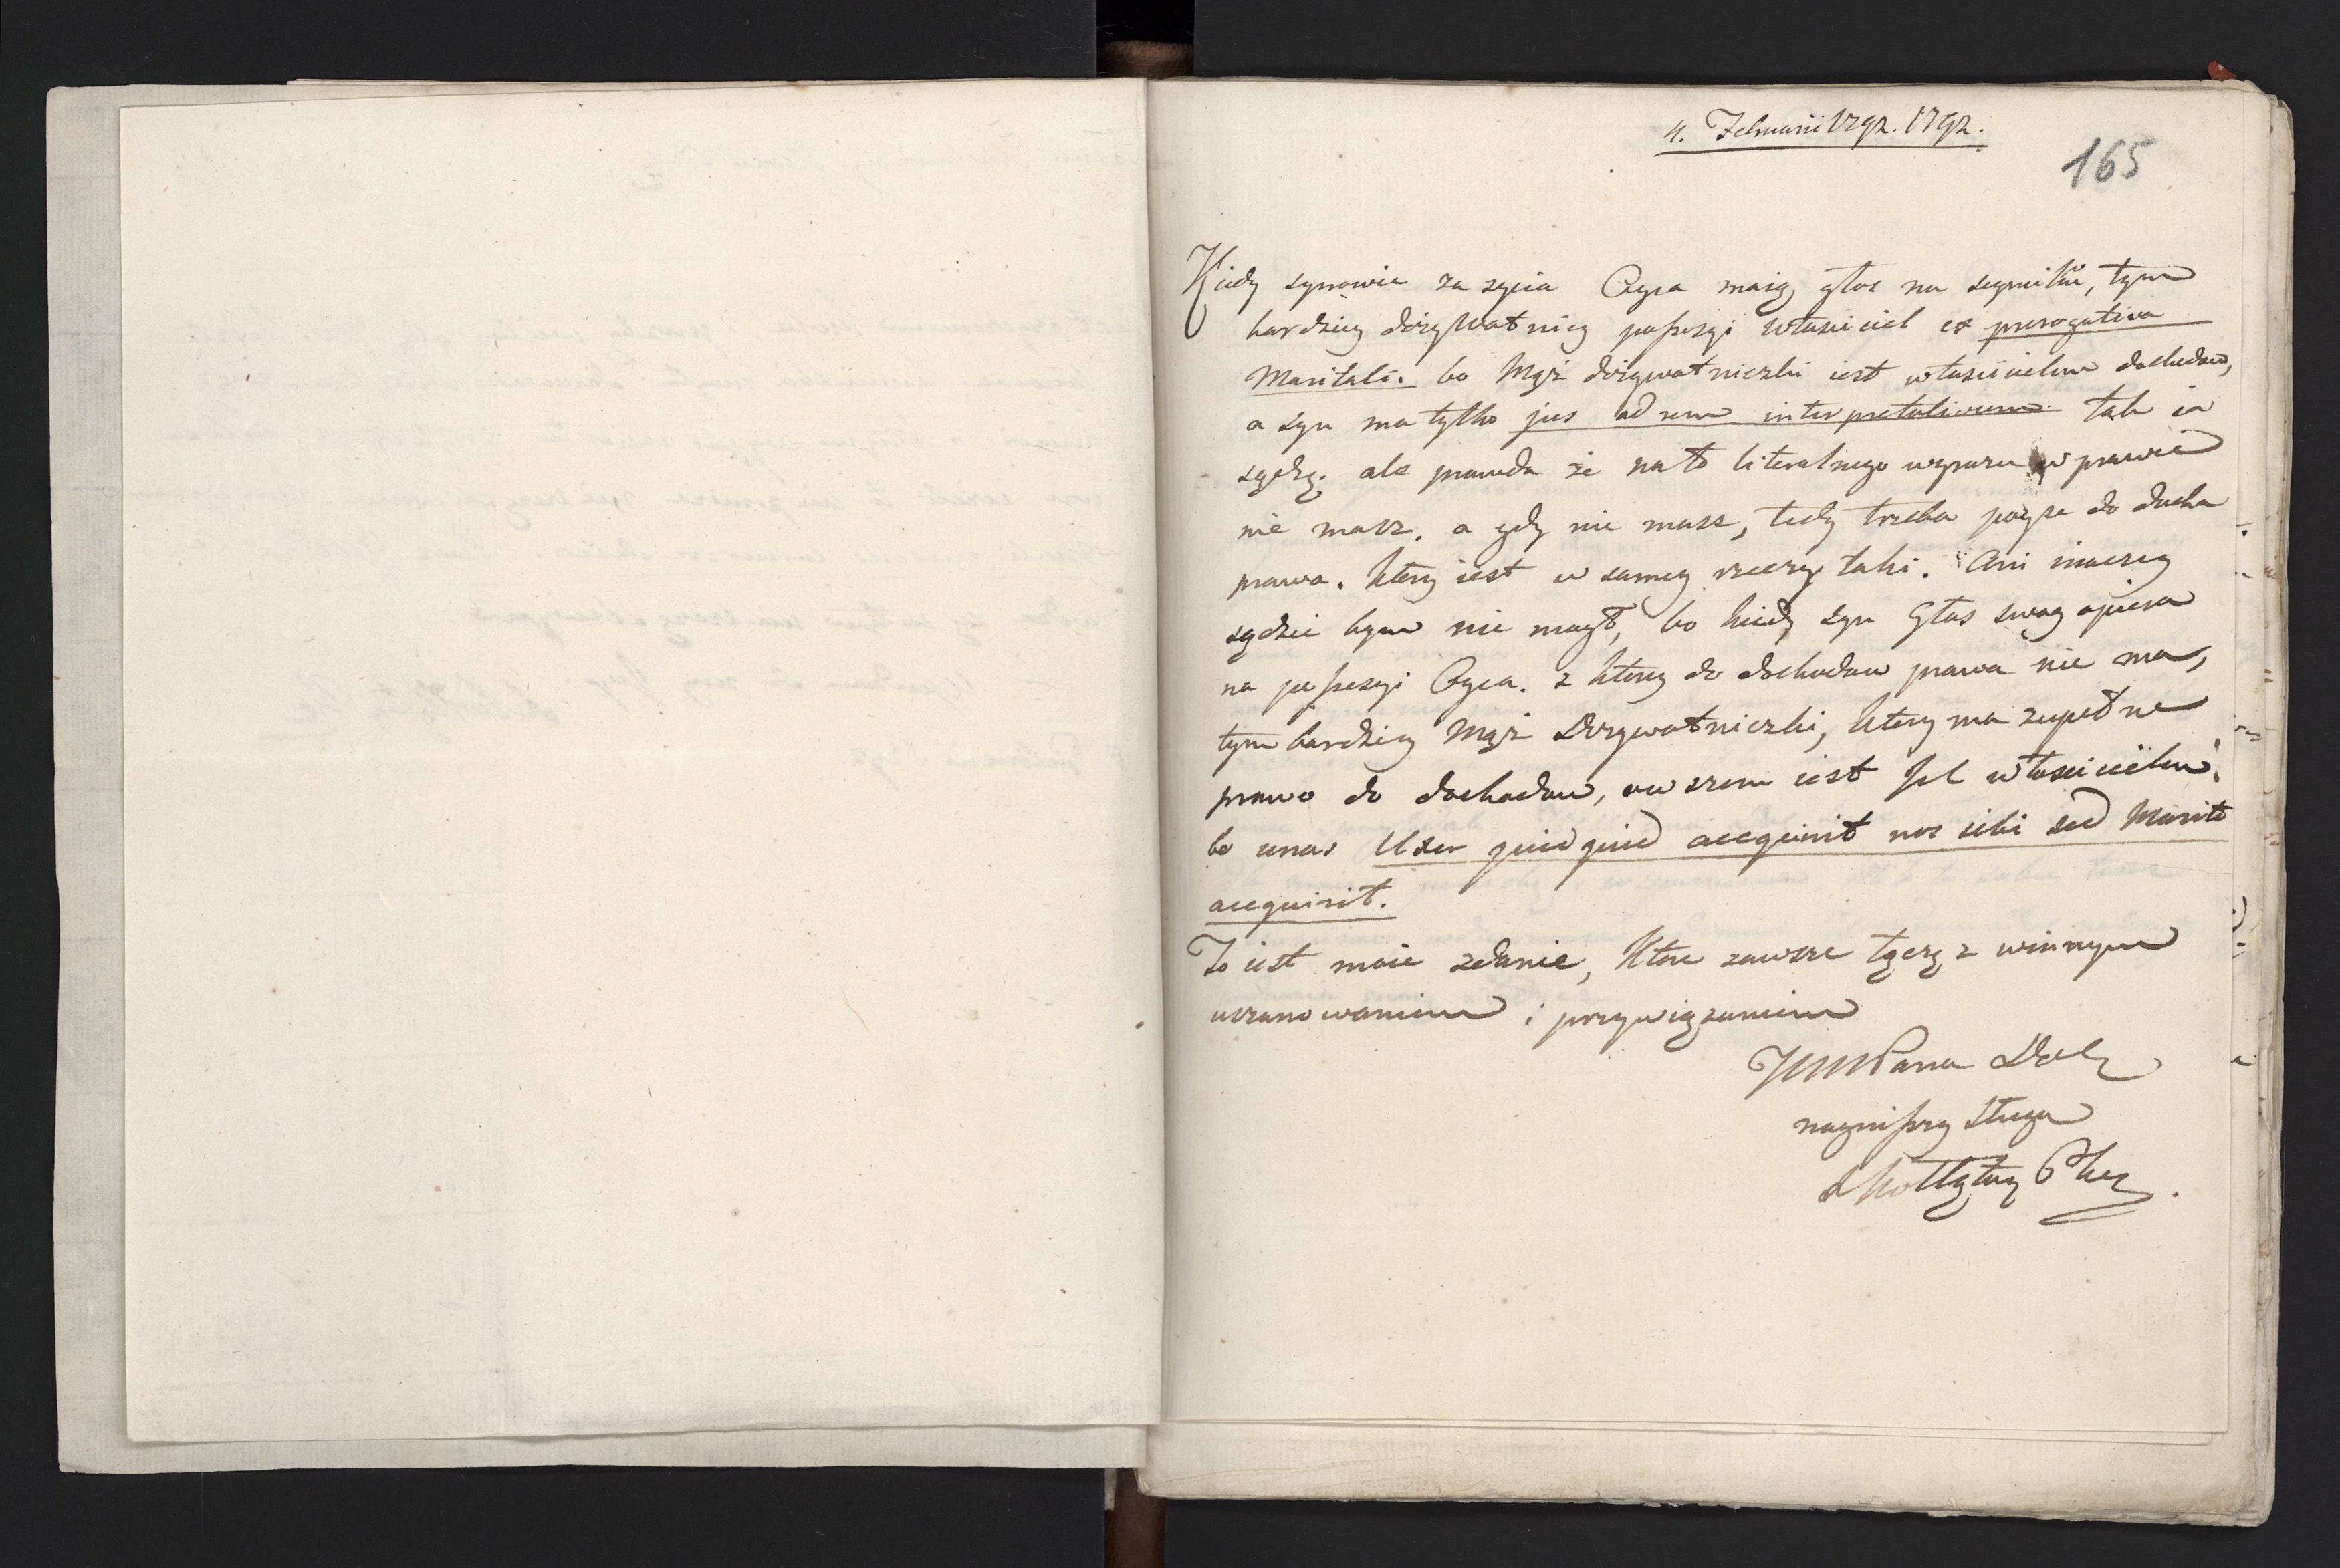 4. Februarii 1792. 1792.
165
Kiedy synowie za zycia Oyca maią głos na seymiku, tym
bardziey dożywotniey possesyi własciciel ex prerogativa
Maritali. bo Mąż dożywotniczki iest własścicielem dochodow,
a syn ma tylko jus ad rem interpretativum. tak ia
sądzę. ale prawda że na to literalnego wyrazu w prawie
nie masz. a gdy nie masz, tedy trzeba poyść do ducha
prawa. ktory iest w samey rzeczy taki. Ani inaczey
sądzić bym nie mogł, bo kiedy syn Głos swoy opiera
na possesyi Oyca. z ktorey do dochodow prawa nie ma,
tym bardziey Mąż Dozywotniczki, ktory ma zupełne
prawo do dochodow, owszem iest sol własścicielem.
bo u nas Uxor quidquid acquirit non sibi sed Marito
acquirit.
To iest moie zdanie, ktore zawsze łączę z winnym
uszanowaniem i przywiązaniem
JWWPana Dob
nayniższy sługa
X Kołłątay Pkc.